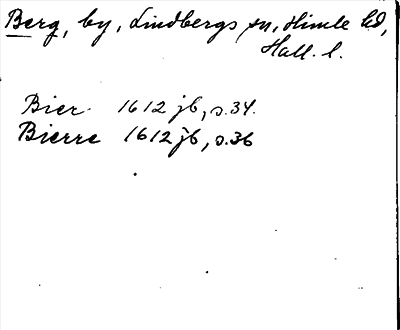 Berg, by, Lindbergs sn, Himle hd,
Hall. l.
Bier 1612 jb, s. 34.
Bierre 1612 jb, s. 36